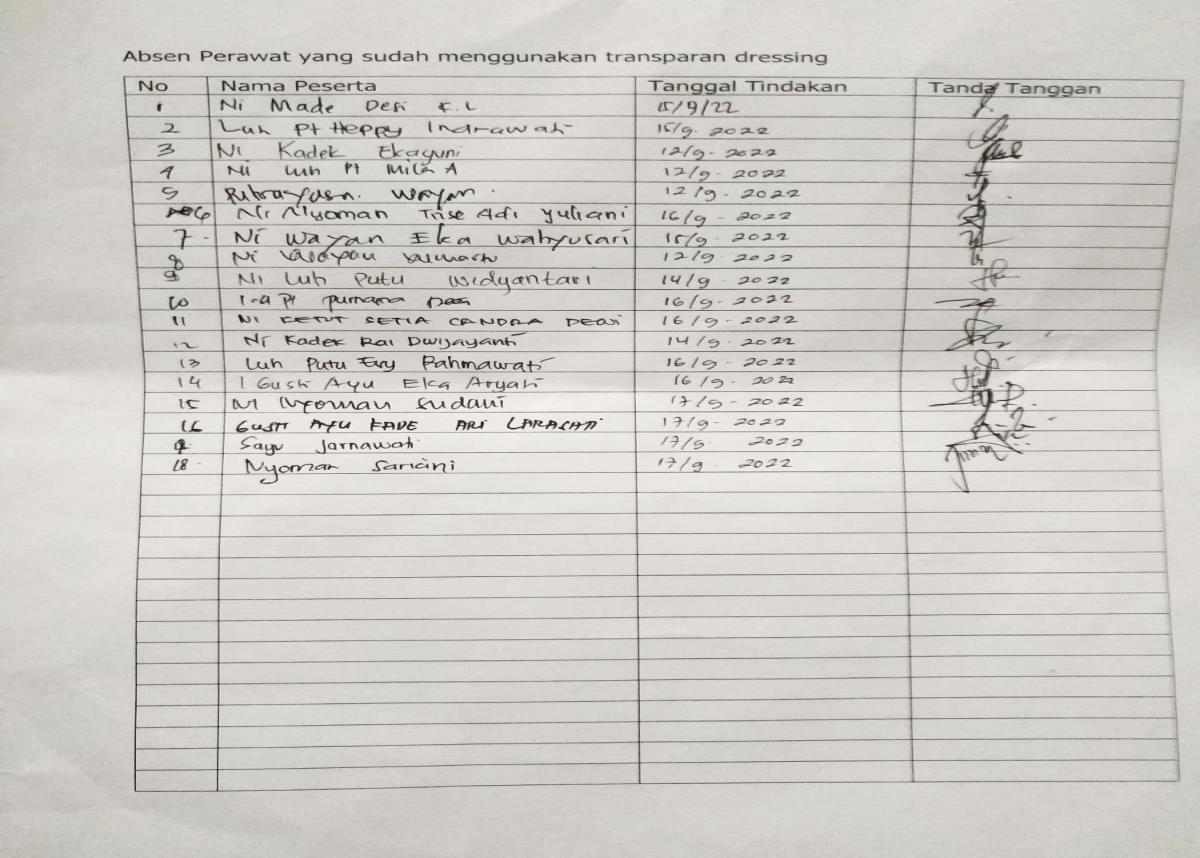 Absen Perawat yang sudah menggunakan transparan dressing
No Nama Peserta Tanggal Tindakan Tanda Tanggan
1 Ni Made Desi K.L 15/9/22
2 Luh Pt Heppy Indrawati 15/9-2022
3 Ni Kadek Ekayuni 12/9-2022
4 Ni Luh Pt Mita A 12/9-2022
5 Wayan. 12/9-2022
6 Ni Nyoman Trise Adi Yuliani 16/9-2022
7. Ni Wayan Eka Wahyusari 15/9-2022
8 Ni 12/9-2022
9 Ni Luh Putu Widyantari 14/9-2022
10 Pt Purnama 16/9-2022
11 NI KETUT SETIA CANDRA DEWI 16/9-2022
12 Ni Kadek Rai Dwijayanti 14/9-2022
13 Luh Putu Rahmawati 16/9-2022
14 I Gusti Ayu Eka Aryati 16/9-2022
15 Ni Nyoman Sudani 17/9-2022
16 GUSTI AYU KADE ARI LARASATI 17/9-2022
Sayu Jarnawati 17/9 2022
18. Nyoman Sariani 17/9-2022